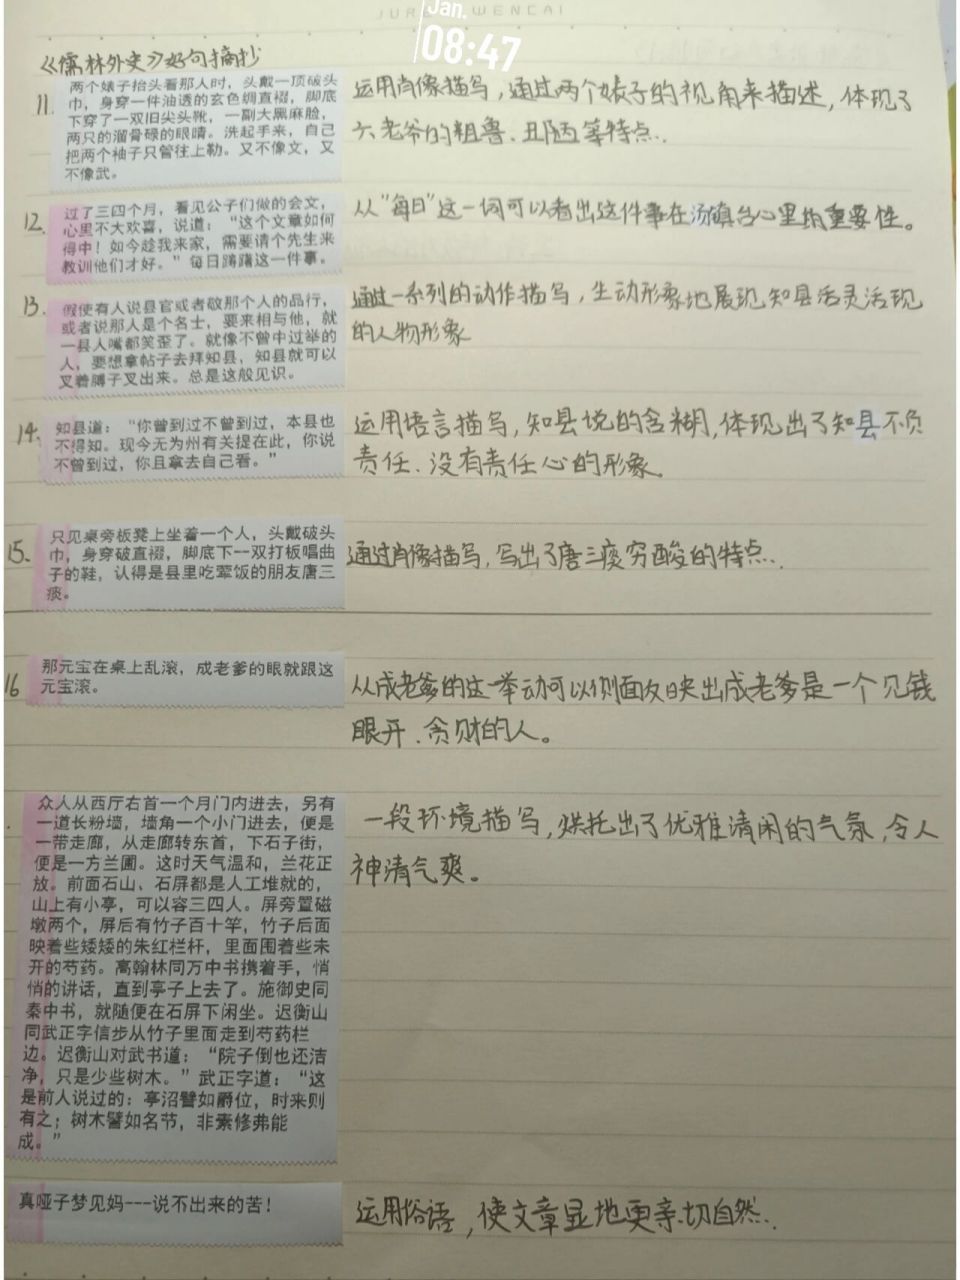 JURE WENCAI
Jan.
08:47
《儒林外史》好句摘抄
11.
两个婊子抬头看那人时，头戴一顶破头
巾，身穿一件油透的玄色绸直裰，脚底
下穿了一双旧尖头靴，一副大黑麻脸，
两只的溜骨碌的眼睛。洗起手来，自己
把两个袖子只管往上勒。又不像文，又
不像武。
运用肖像描写，通过两个婊子的视角来描述，体现了
六老爷的粗鲁、丑陋等特点.
12.
过了三四个月，看见公子们做的会文，
心里不大欢喜，说道：“这个文章如何
得中！如今趁我来家，需要请个先生来
教训他们才好。”每日踌躇这一件事。
从“每日”这一词可以看出这件事在汤镇台心里的重要性。
13.
假使有人说县官或者敬那个人的品行，
或者说那人是个名士，要来相与他，就
一县人嘴都笑歪了。就像不曾中过举的
人，要想拿帖子去拜知县，知县就可以
叉着膊子叉出来。总是这般见识。
通过一系列的动作描写，生动形象地展现知县活灵活现
的人物形象
14.
知县道：“你曾到过不曾到过，本县也
不得知。现今无为州有关提在此，你说
不曾到过，你且拿去自己看。”
运用语言描写，知县说的含糊，体现出了知县不负
责任、没有责任心的形象。
15、
只见桌旁板凳上坐着一个人，头戴破头
巾，身穿破直裰，脚底下一双打板唱曲
子的鞋，认得是县里吃荤饭的朋友唐三
痰。
通过肖像描写，写出了唐三痰穷酸的特点.
16
那元宝在桌上乱滚，成老爹的眼就跟这
元宝滚。
从成老爹的这一举动可以侧面反映出成老爹是一个见钱
眼开、贪财的人。
众人从西厅右首一个月门内进去，另有
一道长粉墙，墙角一个小门进去，便是
一带走廊，从走廊转东首，下石子街，
便是一方兰圃。这时天气温和，兰花正
放。前面石山、石屏都是人工堆就的，
山上有小亭，可以容三四人。屏旁置磁
墩两个，屏后有竹子百十竿，竹子后面
映着些矮矮的朱红栏杆，里面围着些未
开的芍药。高翰林同万中书携着手，悄
悄的讲话，直到亭子上去了。施御史同
秦中书，就随便在石屏下闲坐。迟衡山
同武正字信步从竹子里面走到芍药栏
边。迟衡山对武书道：“院子倒也还洁
净，只是少些树木。”武正字道：“这
是前人说过的：亭沼譬如爵位，时来则
有之；树木譬如名节，非素修弗能
成。”
一段环境描写，烘托出了优雅清闲的气氛，令人
神清气爽。
真哑子梦见妈---说不出来的苦！
运用俗语，使文章显地更亲切自然.